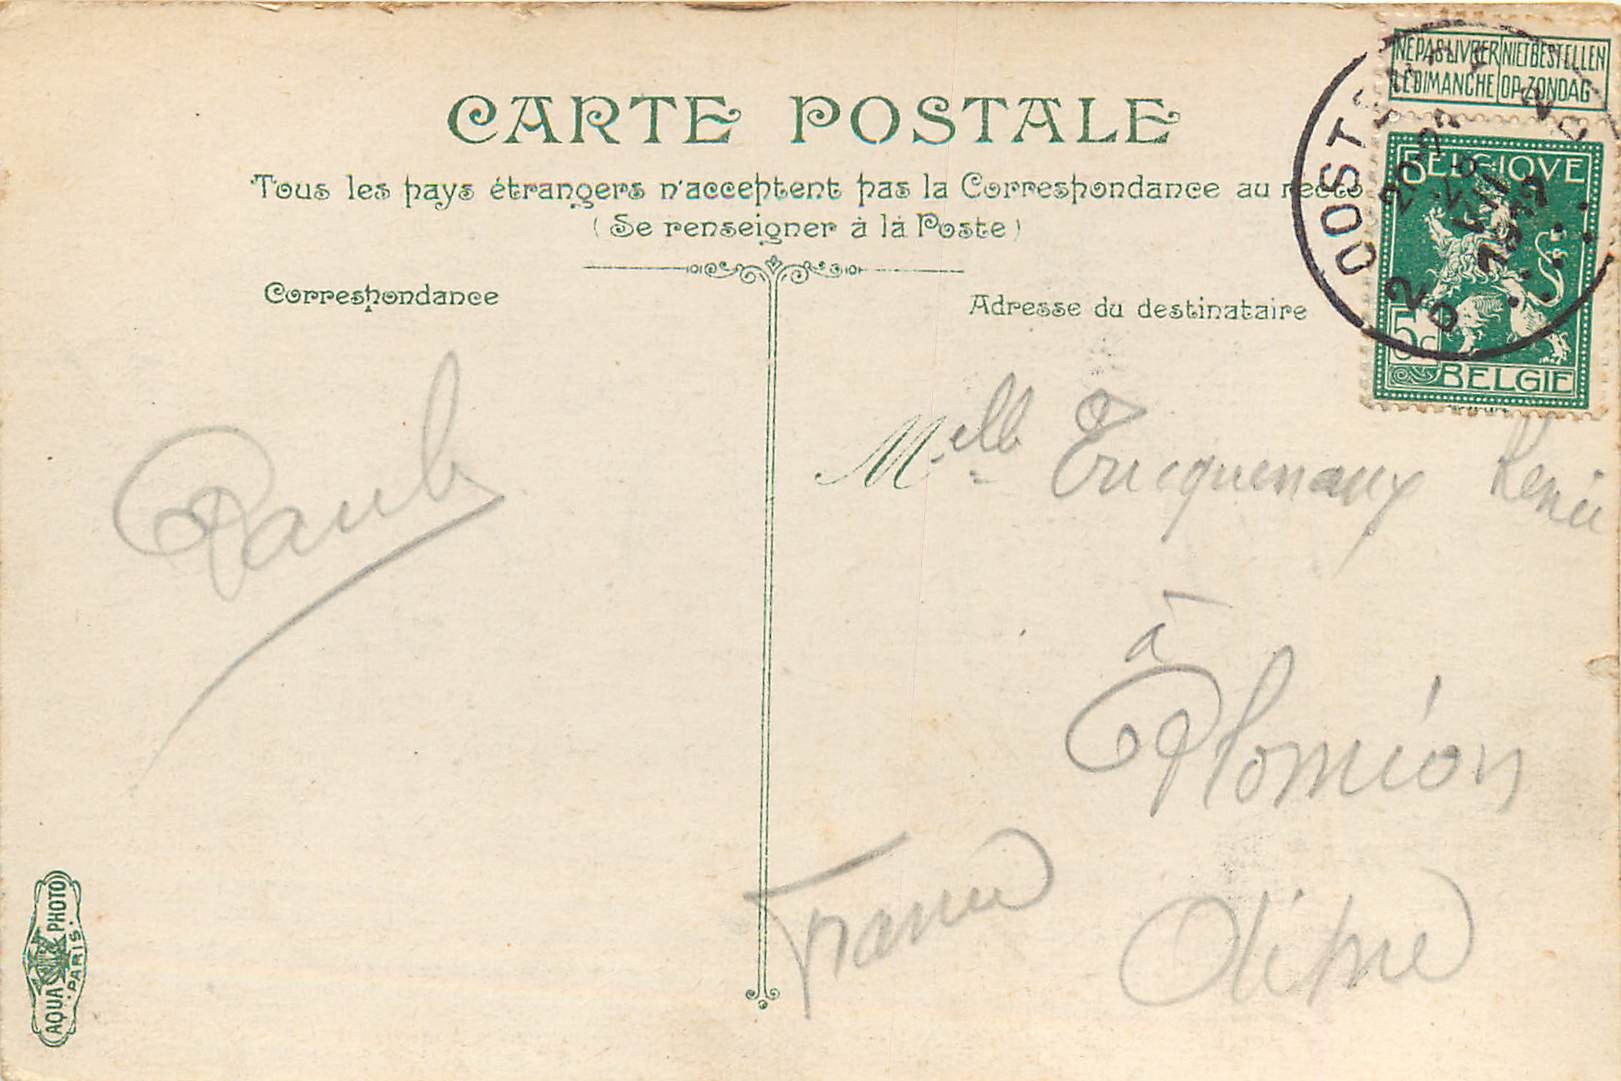 CARTE POSTALE
Tous les pays étrangers n'acceptent pas la Correspondance au recto
(Se renseigner à la Poste)
Correspondance
Adresse du destinataire
NE PAS LIVRER LE DIMANCHE
NIET BESTELLEN OP ZONDAG
BELGIQUE
5c
BELGIË
OOSTENDE
1912
Paul
Melle Tricquenaux Renée
à
Plomion
Aisne
France
AQUA PHOTO
PARIS